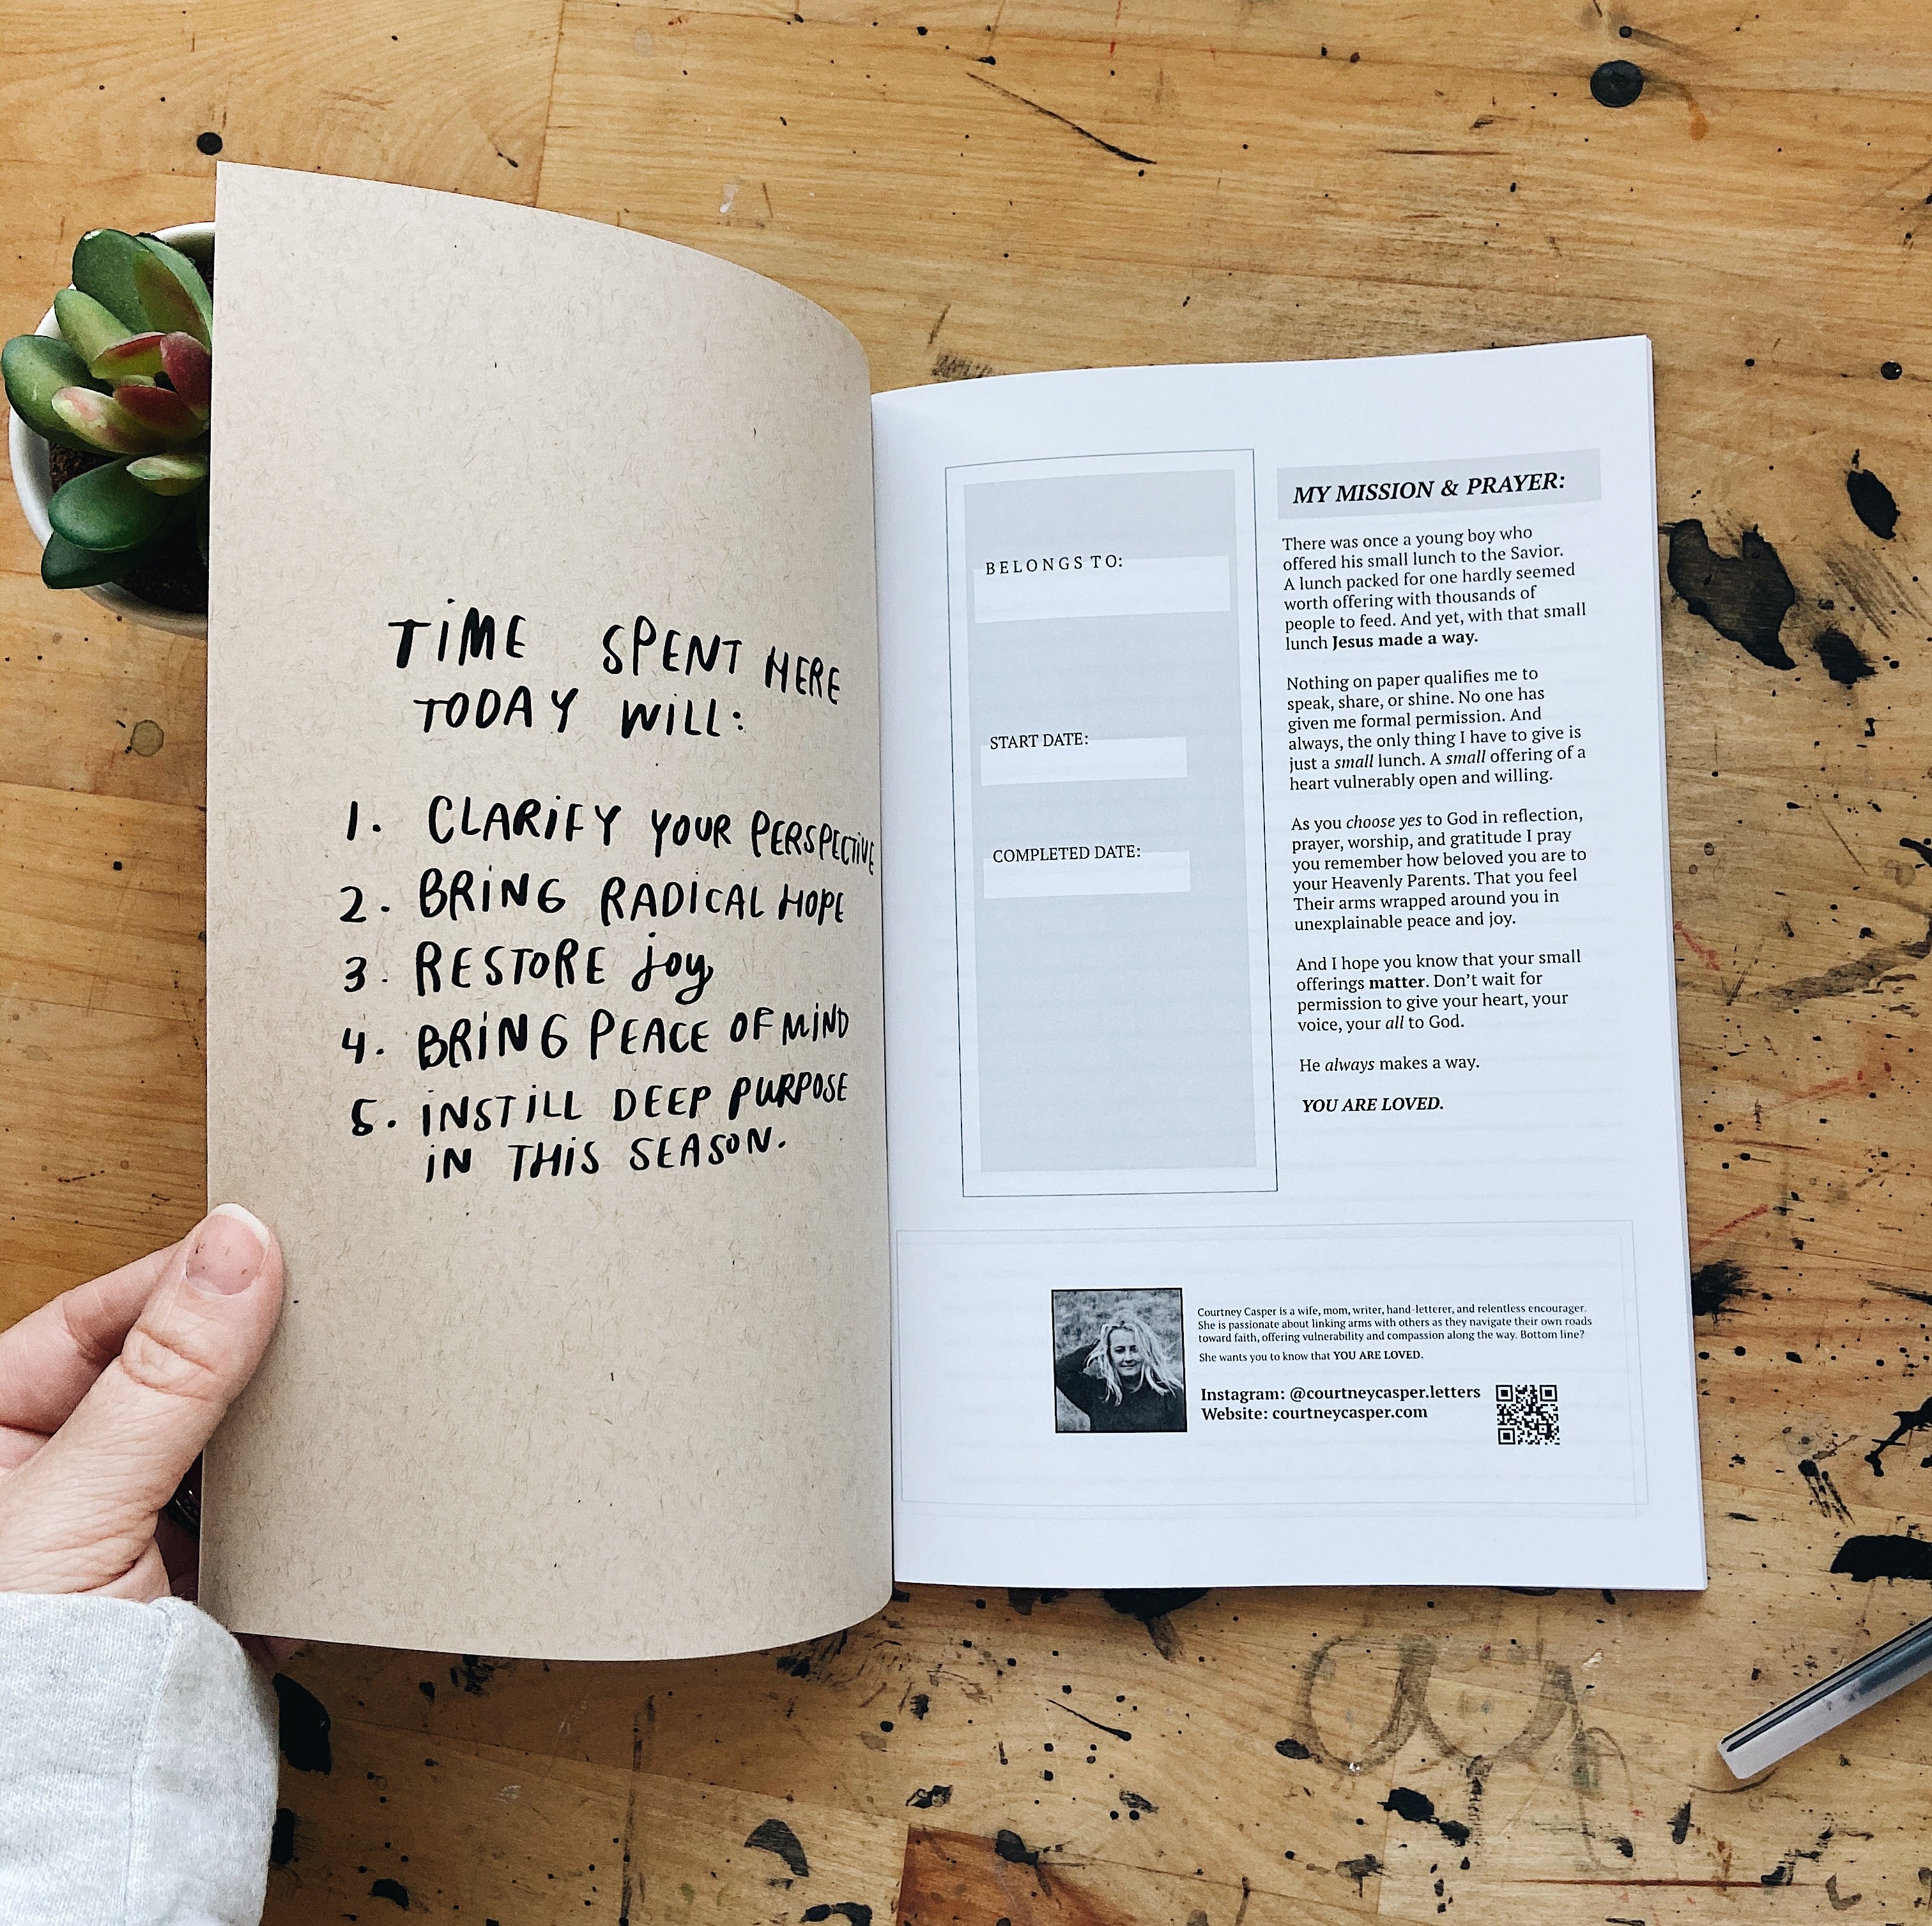 TIME SPENT HERE
TODAY WILL:
1. CLARIFY YOUR PERSPECTIVE
2. BRING RADICAL HOPE
3. RESTORE joy
4. BRING PEACE OF MIND
5. INSTILL DEEP PURPOSE
IN THIS SEASON.
BELONGS TO:
START DATE:
COMPLETED DATE:
MY MISSION & PRAYER:
There was once a young boy who
offered his small lunch to the Savior.
A lunch packed for one hardly seemed
worth offering with thousands of
people to feed. And yet, with that small
lunch Jesus made a way.
Nothing on paper qualifies me to
speak, share, or shine. No one has
given me formal permission. And
always, the only thing I have to give is
just a small lunch. A small offering of a
heart vulnerably open and willing.
As you choose yes to God in reflection,
prayer, worship, and gratitude I pray
you remember how beloved you are to
your Heavenly Parents. That you feel
Their arms wrapped around you in
unexplainable peace and joy.
And I hope you know that your small
offerings matter. Don't wait for
permission to give your heart, your
voice, your all to God.
He always makes a way.
YOU ARE LOVED.
Courtney Casper is a wife, mom, writer, hand-letterer, and relentless encourager.
She is passionate about linking arms with others as they navigate their own roads
toward faith, offering vulnerability and compassion along the way. Bottom line?
She wants you to know that YOU ARE LOVED.
Instagram: @courtneycasper.letters
Website: courtneycasper.com